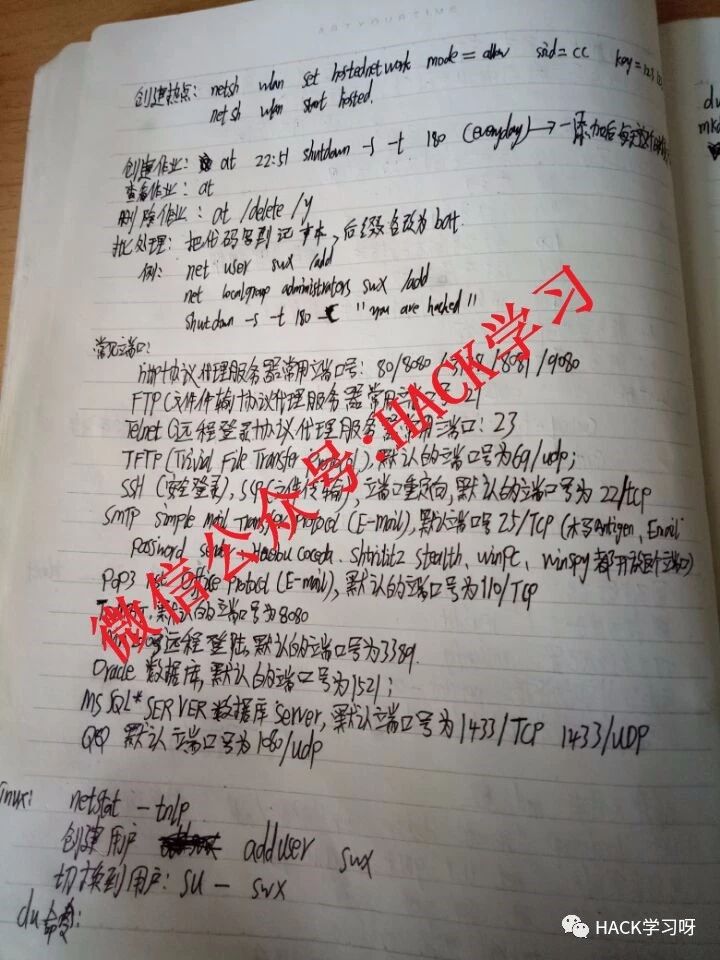 创建热点: netsh wlan set hostednetwork mode = allow ssid = cc key = 123
netsh wlan start hosted.
du
创建作业: at 22:51 shutdown -s -t 180 (everyday) → 一添加后每天
查看作业: at
删除作业: at /delete /y
批处理: 把代码写到记事本, 后缀名改为bat.
例: net user swx /add
net localgroup administrators swx /add
shutdown -s -t 180 -c "you are hacked"
常见端口:
http协议代理服务器常用端口号: 80/8080/3128/8081/9080
FTP(文件传输)协议代理服务器常用端口号 21
Telnet(远程登录)协议代理服务器常用端口: 23
TFTP (Trivial File Transfer Protocol), 默认的端口号为69/udp;
SSH (安全登录), SCP(文件传输), 端口重定向, 默认的端口号为 22/tcp
SMTP Simple Mail Transfer Protocol (E-mail), 默认端口号 25/TCP (木马Antigen, Email
Password Sender, Haebu Coceda. Shtrilitz Stealth, WinPC, WinSpy 都开放这个端口)
POP3 Post Office Protocol (E-mail), 默认的端口号为110/TCP
默认的端口号为8080
远程登陆, 默认的端口号为3389.
Oracle 数据库, 默认的端口号为1521;
MS SQL* SERVER 数据库 server, 默认端口号为1433/TCP 1433/UDP
QQ 默认端口号为1080/udp
linux: netstat -tnlp
创建用户 adduser swx
切换到用户: su - swx
du命令:
微信公众号:HACK学习
HACK学习呀